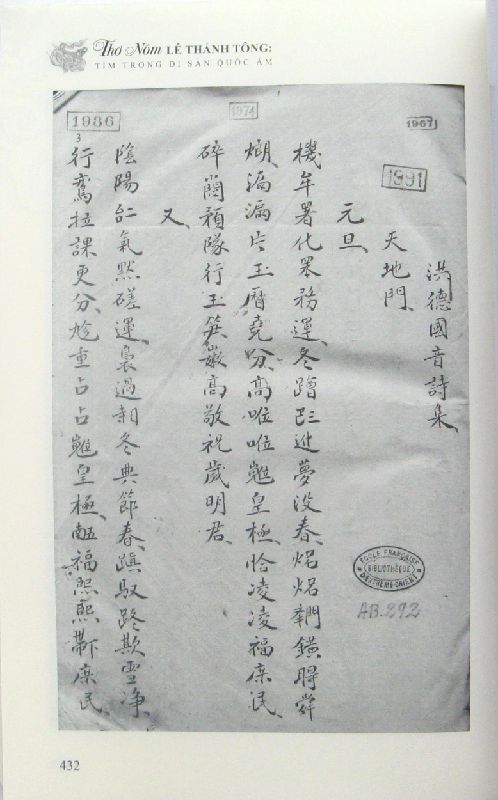 Thơ Nôm LÊ THÁNH TÔNG:
TÌM TRONG DI SẢN QUỐC ÂM
1986
1974
1967
1891
洪德國音詩集
天地門
元旦
機年署化務運冬蹭夢没春焒焒鐄舜
漏漏片玉曆堯高唯唯皇極恰凌凌福庶民
碎隊行玉笋高敬祝歲明君
又
陰陽氣默磋運裊過冬典節春蹎馭路欺雪净
3
行鴛拉課更分重占占皇極福熙熙庶民
ÉCOLE FRANÇAISE
BIBLIOTHÈQUE
D'EXTRÊME-ORIENT
AB.292
432